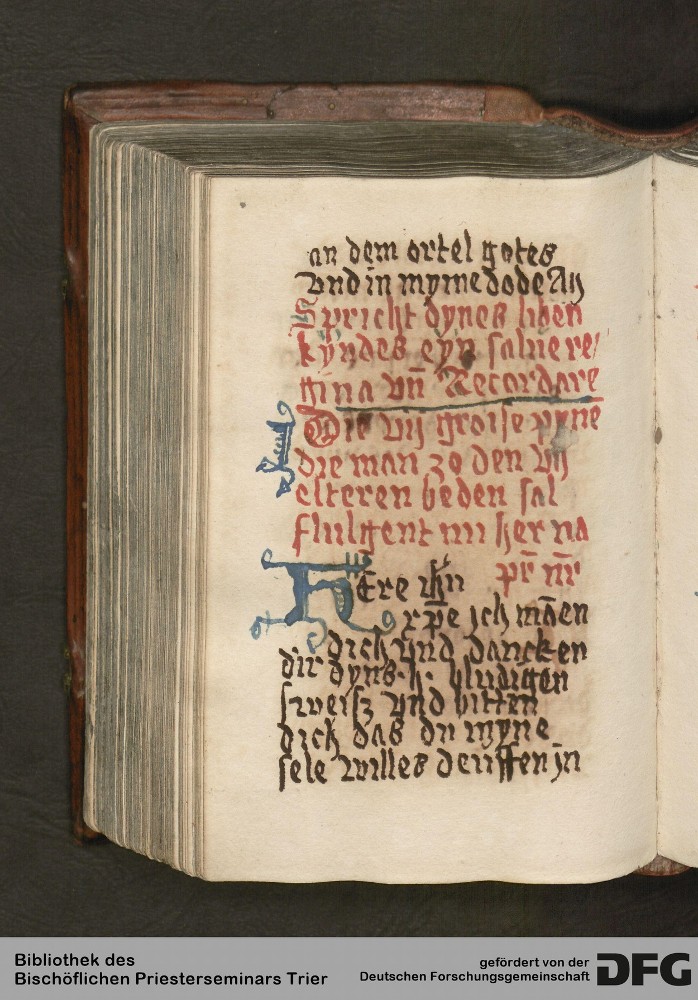 an dem ortel gotes
vnd in myme dode Am̄
Spricht dynes liben
kyndes eyn salue re/
gina vn̄ Recordare
Die vij groise pyne
die man zo den vij
elteren beden sal
fluigent nu her na
pr̄ nr̄
HEre ih̄u
xp̄e ich mānen
dich vnd dancken
dir dyns · h · bludigen
sweisz vnd bitten
dich das du myne
sele willes deuffen jn
Bibliothek des
Bischöflichen Priesterseminars Trier
gefördert von der
Deutschen Forschungsgemeinschaft
DFG